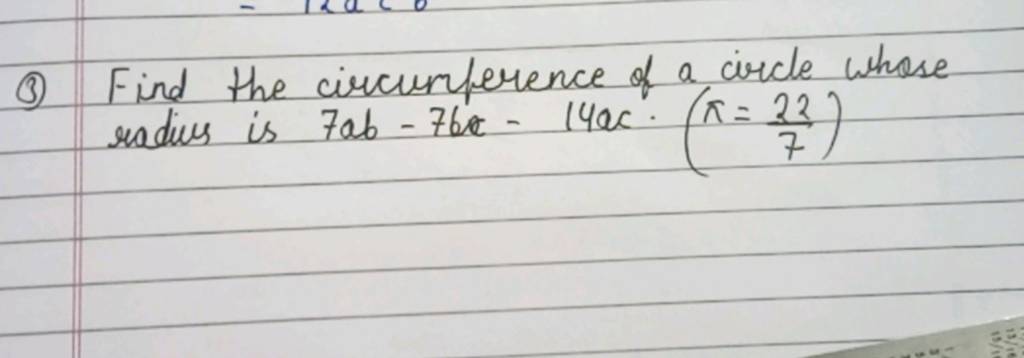 ③ Find the circumference of a circle whose
radius is 7ab - 7bc - 14ac. (π = 22/7)